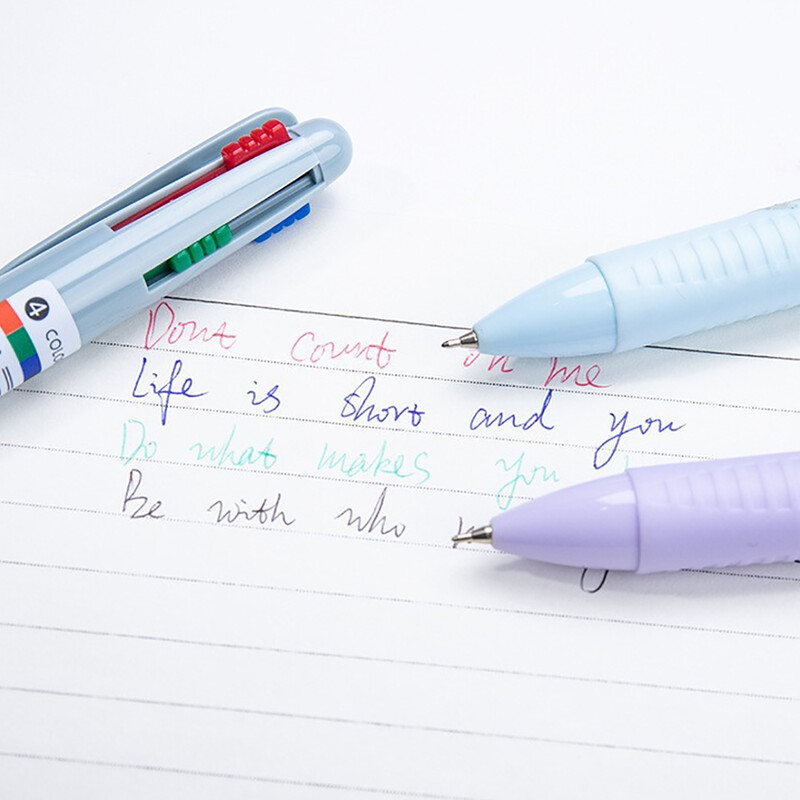 4 COLO
Dont count on me
Life is short and you
Do what makes you
Be with who